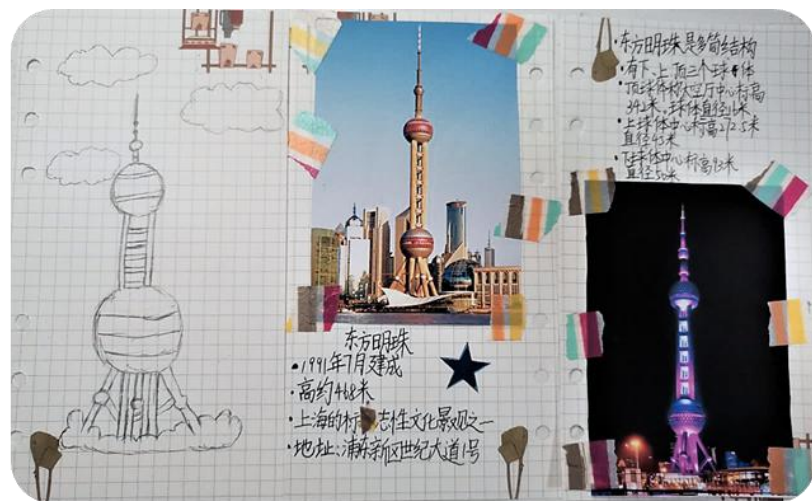 东方明珠
·1991年7月建成
·高约468米
·上海的标志性文化景观之一
·地址:浦东新区世纪大道1号
·东方明珠是多筒结构
·有下、上、顶三个球体
·顶球体称太空厅中心标高
342米、球体直径16米
·上球体中心标高272.5米
直径45米
·下球体中心标高93米
直径50米